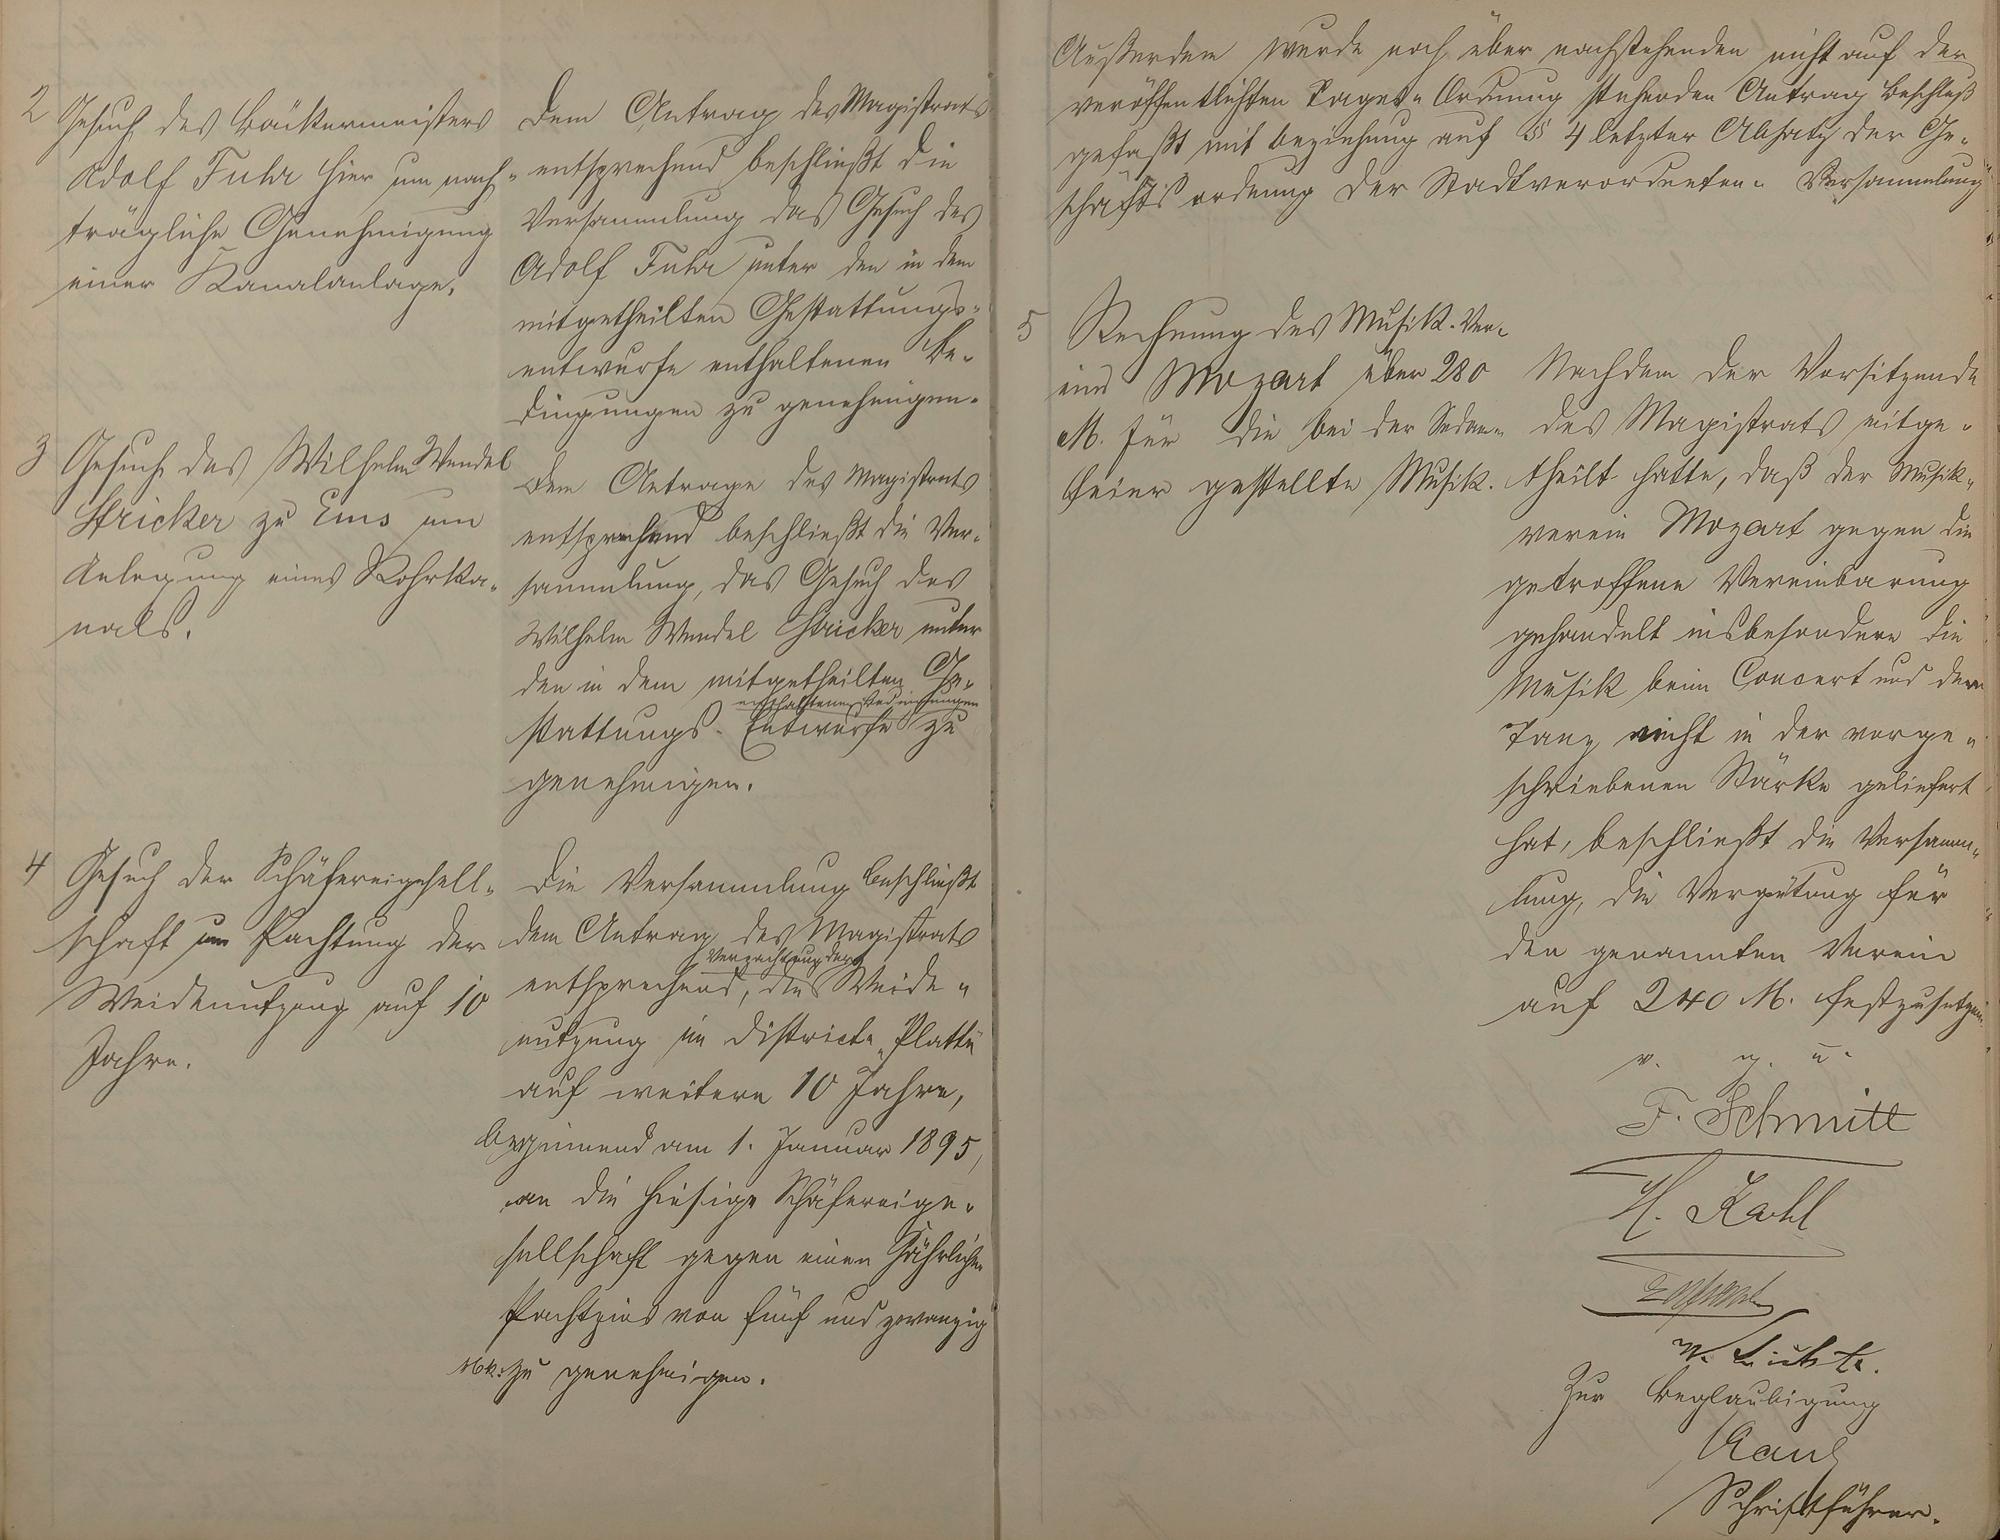 2
Gesuch des Bäckermeisters
Adolf Fuhr hier um nach-
trägliche Genehmigung
einer Kanalanlage.
Dem Antrag des Magistrats
entsprechend beschließt die
Versammlung das Gesuch des
Adolf Fuhr unter den in dem
mitgetheilten Gestattungs-
entwurfe enthaltenen Be-
dingungen zu genehmigen.
3
Gesuch des Wilhelm Wendel
Stricker zu Ems um
Anlegung eines Rohrka-
nals.
Dem Antrage des Magistrats
entsprechend beschließt die Ver-
sammlung, das Gesuch des
Wilhelm Wendel Stricker unter
den in dem mitgetheilten Ge-
enthaltenen Bedingungen
stattungs-Entwurfe zu
genehmigen.
4
Gesuch der Schäfereigesell-
schaft um Pachtung der
Weidenutzung auf 10
Jahre.
Die Versammlung beschließt
dem Antrag des Magistrats
Verpachtung der
entsprechend, die Weide-
nutzung im District „Platte“
auf weitere 10 Jahre,
beginnend am 1. Januar 1895,
an die hiesige Schäfereige-
sellschaft gegen einen jährlichen
Pachtzins von fünf und zwanzig
Mk. zu genehmigen.
Außerdem wurde noch über nachstehenden nicht auf der
veröffentlichten Tages-Ordnung stehenden Antrag Beschluß
gefaßt mit Beziehung auf § 4 letzter Absatz der Ge-
schäftsordnung der Stadtverordneten-Versammlung
5
Rechnung des Musik-Ver-
eins Mozart über 280
M. für die bei der Sedan-
feier gestellte Musik.
Nachdem der Vorsitzende
des Magistrats mitge-
theilt hatte, daß der Musik-
verein Mozart gegen die
getroffene Vereinbarung
gehandelt insbesondere die
Musik beim Concert und dem
Tanz nicht in der vorge-
schriebenen Stärke geliefert
hat, beschließt die Versamm-
lung, die Vergütung für
den genannten Verein
auf 240 M. festzusetzen.
v. g. u.
F. Schmitt
H. Kahl
Zur Beglaubigung
Kaul
Schriftführer.